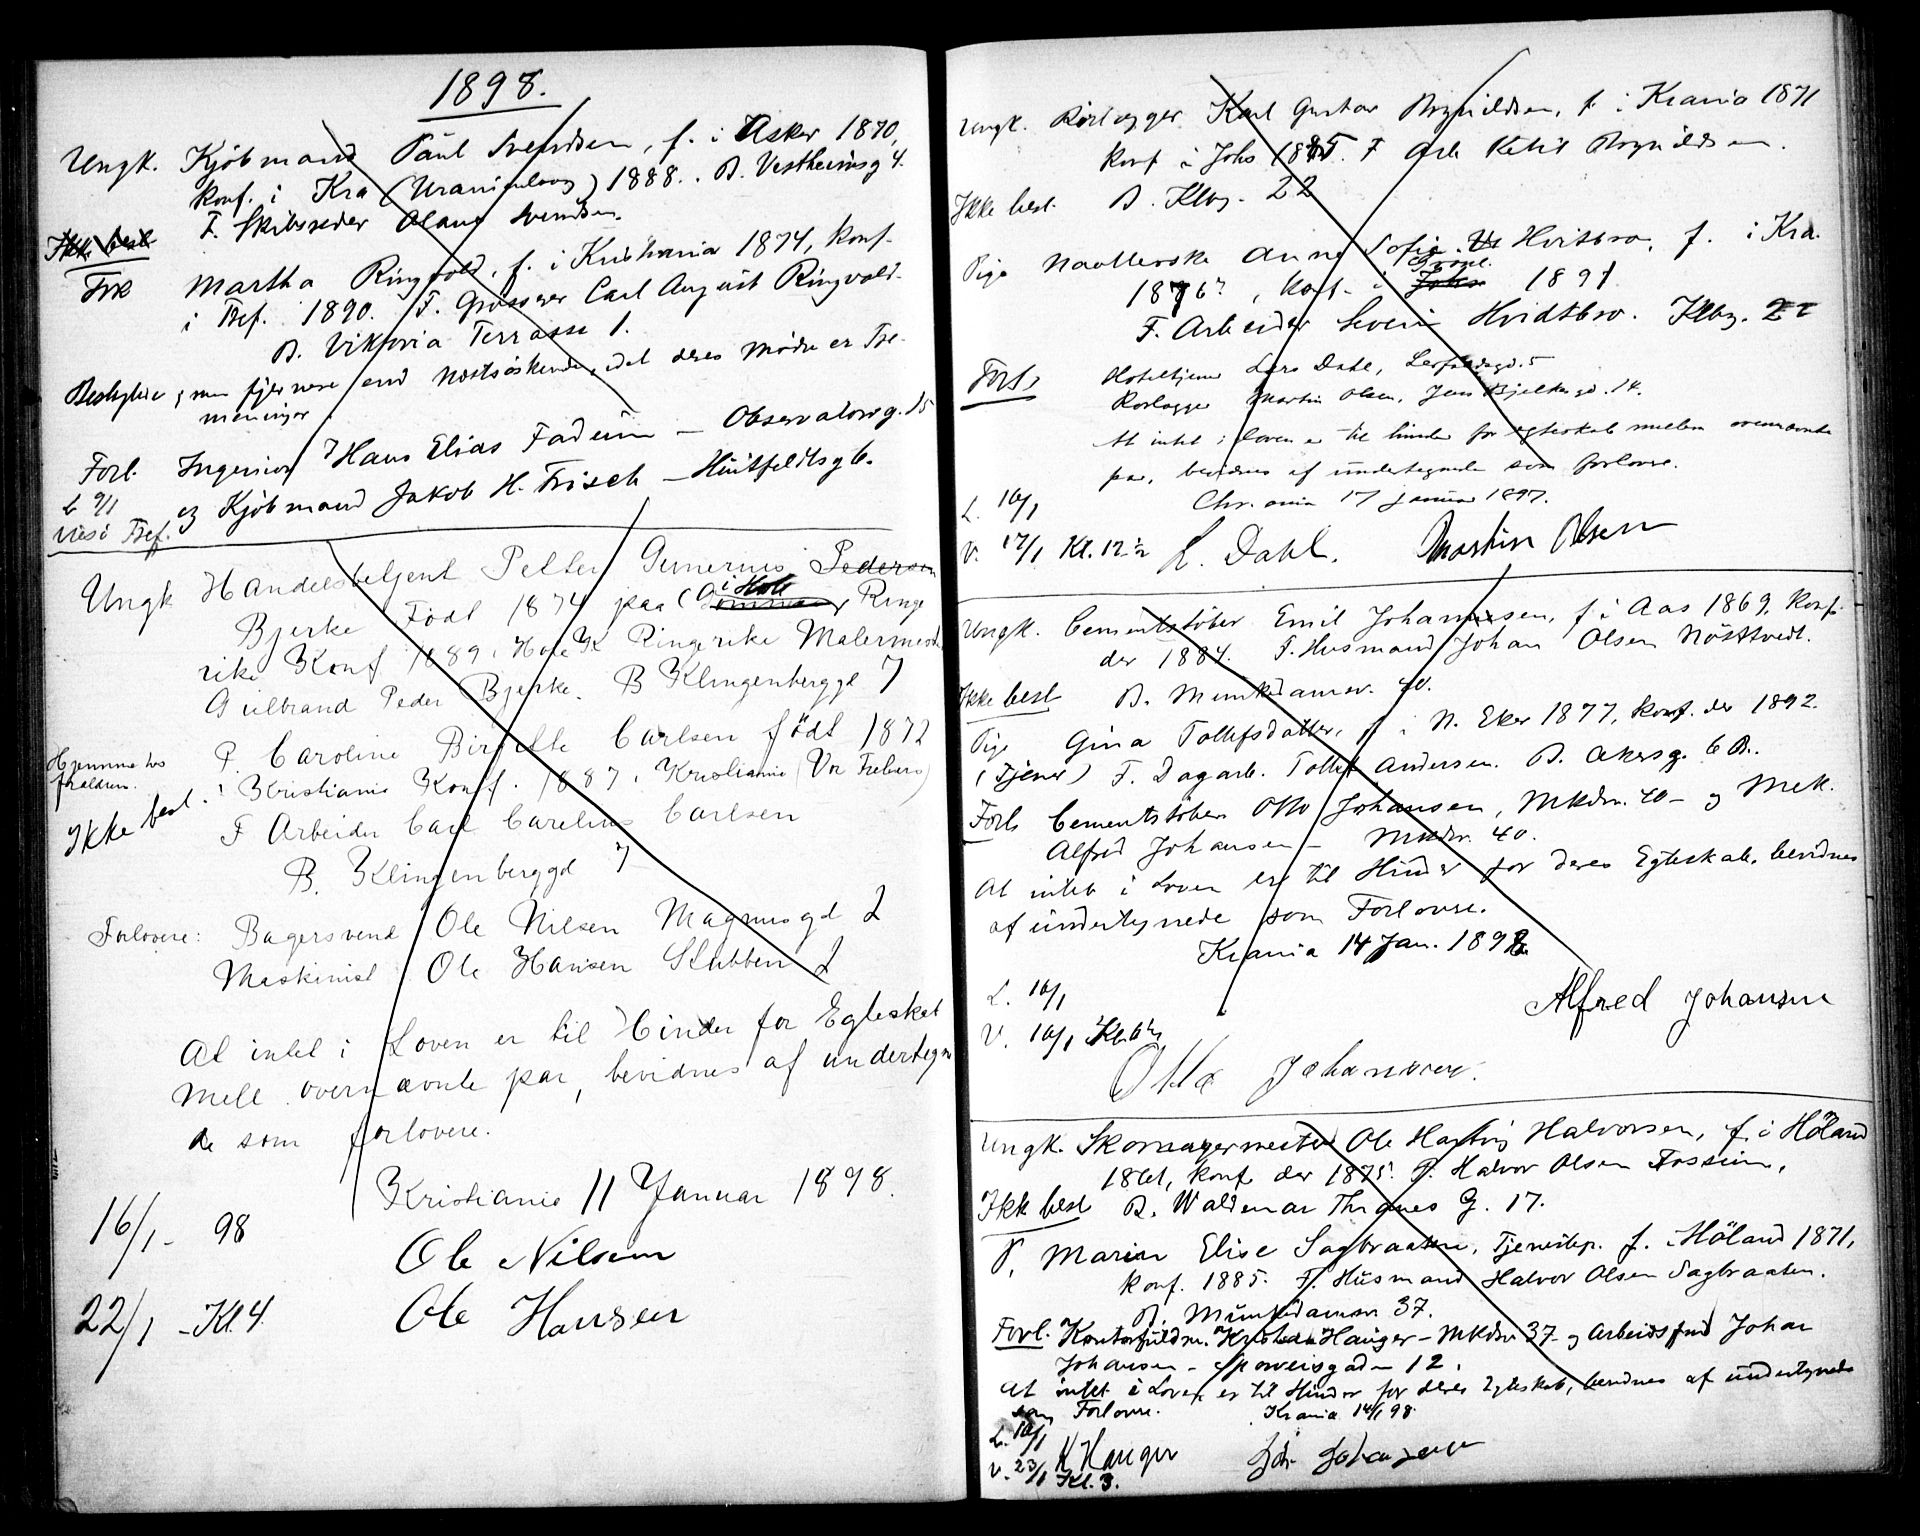 1898.
Ungk. Kjöbmand Paul Svendsen, f. i Asker 1870,
konf. i Kra (Uranienborg) 1888. B. Vestheimsg 4.
F. Skibsreder Olaus Svendsen.
Ikke best
Frk Martha Ringvold, f. i Kristiania 1874, konf.
i Tref. 1890. F. Grosserer Carl August Ringvold.
B. Viktoria Terrasse 1.
Beslegtede, men fjernere end Næstsöskende, idet deres Mödre er Tre-
meninger.
Forl. Ingeniør Hans Elias Fadum – Observatorieg. 15
L 9/1 og Kjöbmand Jakob H. Frisch – Huitfeldtsg 6.
Vies i Tref.
Ungk Handelsbetjent Petter Gunerius Pedersen
Bjerke Födt 1874 paa i Hole Ringe
rike Konf 1889 i Hole K Ringerike Malermester
Gulbrand Peder Bjerke. B Klingenberggd 7
P. Caroline Birgitte Carlsen födt 1872
Hjemme hos
forældren.
i Kristiania Konf. 1887 i Kristiania (Vor Frelsers)
Ikke best.
F Arbeider Carl Carelius Carlsen
B. Klingenberggd 7
Forlovere: Bagersvend Ole Nilsen Magnusgd 2
Maskinist Ole Hansen Stubben 2
At intet i Loven er til Hinder for Egteskab
mell. overnævnte par, bevidnes af undertegne
de som forlovere.
Kristiania 11 Januar 1898.
16/1 - 98
Ole Nilsen
22/1 - Kl. 4
Ole Hansen
Ungk. Rörlægger Karl Gustav Brynildsen, f. i Krania 1871
konf i Johs 1885. F Arb Ketil Brynildsen.
Ikke best. B. Klbg. 22
Pige Naatlerske Anna Sofie Hvitbro, f. i Kra.
Grönl.
1876?, konf. i Johs 1891
F. Arbeider Severin Hvidtbro. Klbg. 22
Forl. Hoteltjener Lars Dahl, Lerfaldsgd. 5
Rørlægger Martin Olsen, Jens Bjelkesgd. 14.
At intet i loven er til hinder for egteskab mellem ovennævnte
par, bevidnes af undertegnede som forlovere.
Chr.ania 17 Januar 1897.
L. 16/1
V. 17/1 Kl. 12 1/2 L. Dahl. Martin Olsen
Ungk. Cementstöber Emil Johannesen, f. i Aas 1869, konf.
der 1884. F. Husmand Johan Olsen Nösttvedt.
Ikke best B. Munkedamsv. 40.
Pige Gina Tollefsdatter, f. i N. Eker 1877, konf. der 1892.
(Tjener) F. Dagarb. Tollef Andersen. B. Akersg. 6 B.
Forl. Cementstöber Otto Johansen, Mkdmv. 40 – og Mek.
Alfred Johansen – Mkdmv. 40.
At intet i Loven er til Hinder for deres Egteskab, bevidnes
af undertegnede som Forlovere.
Krania 14 Jan. 1898
L. 16/1
Alfred Johansen
V. 16/1 Kl. 6 1/2
Otto Johansen.
Ungk. Skomagermester Ole Hartvig Halvorsen, f. i Höland
1861, konf. der 1875. F. Halvor Olsen Fossum,
Ikke best B. Waldemar Thranes G. 17.
P. Maren Elise Sagbraaten, Tjenestep. f. i Höland 1871,
konf. 1885. F. Husmand Halvor Olsen Sagbraaten.
B. Munkedamsv 37.
Forl. Kontorfuldm. Kristian Hauger – Mkdmv 37 – og Arbeidsfmd Johan
Johansen – Sporveisgaden 12.
At intet i Loven er til Hinder for deres Egteskab, bevidnes af undertegnede
som Forlovere. Krania 14/1 98.
L. 16/1
V. 23/1 K Hauger Joh. Johansen
Kl. 3.